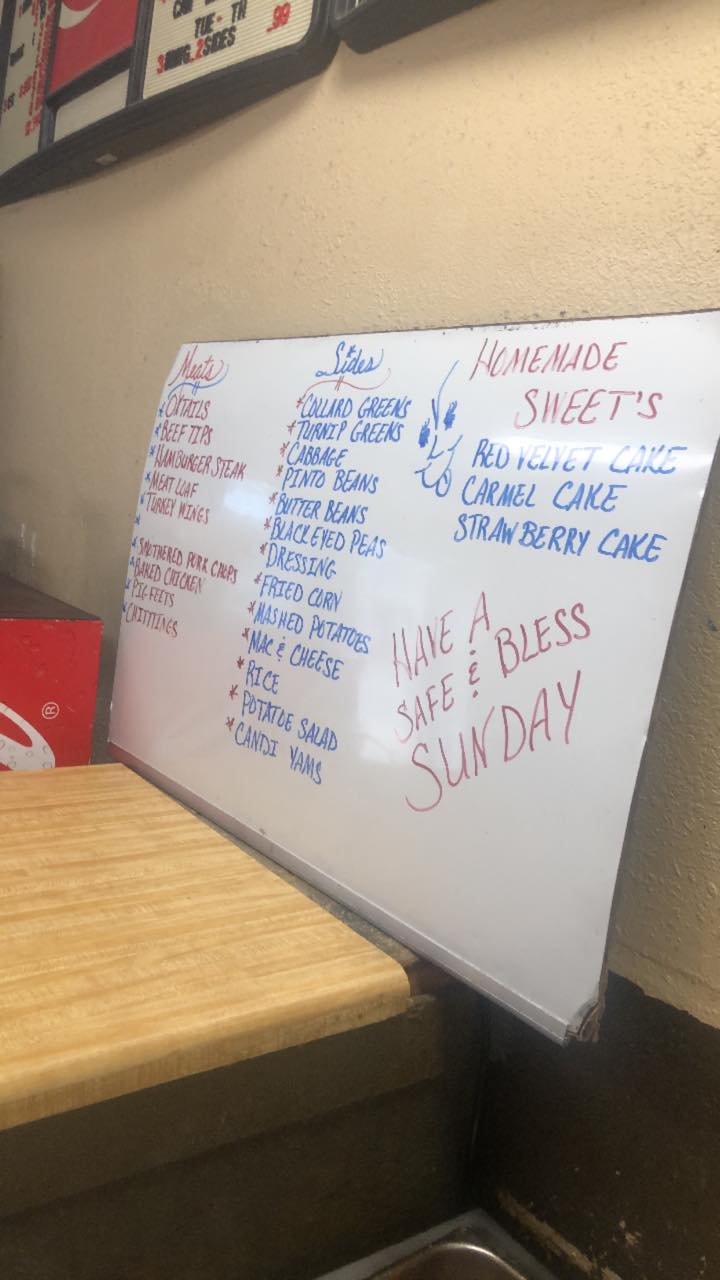 TUE - TH
3 WING 2 SIDES .99
Meats
* OXTAILS
* BEEF TIPS
* HAMBURGER STEAK
* MEAT LOAF
* TURKEY WINGS
*
* SMOTHERED PORK CHOPS
* BAKED CHICKEN
* PIG FEETS
* CHITTINGS
Sides
* COLLARD GREENS
* TURNIP GREENS
* CABBAGE
* PINTO BEANS
* BUTTER BEANS
* BLACK EYED PEAS
* DRESSING
* FRIED CORN
* MASHED POTATOES
* MAC & CHEESE
* RICE
* POTATOE SALAD
* CANDI YAMS
HOMEMADE
SWEET'S
RED VELVET CAKE
CARMEL CAKE
STRAWBERRY CAKE
HAVE A
SAFE & BLESS
SUNDAY
®